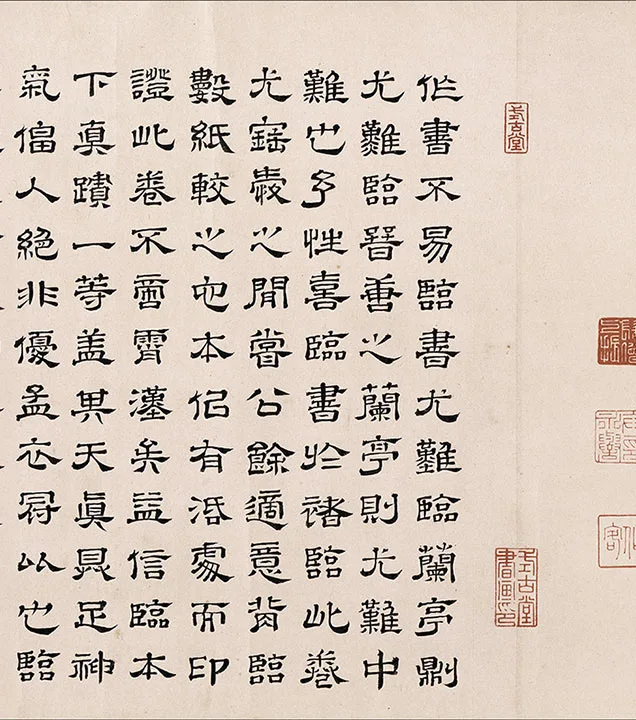 式古堂
式古堂書畫印
作書不易臨書尤難臨蘭亭則
尤難臨晉善之蘭亭則尤難中
難也予性喜臨書於褚臨此卷
尤之間嘗公餘適意背臨
數紙較之他本似有活處而印
證此卷不啻霄漢矣益信臨本
下真蹟一等蓋其天真具足神
氣偪人絕非優孟衣冠比也臨